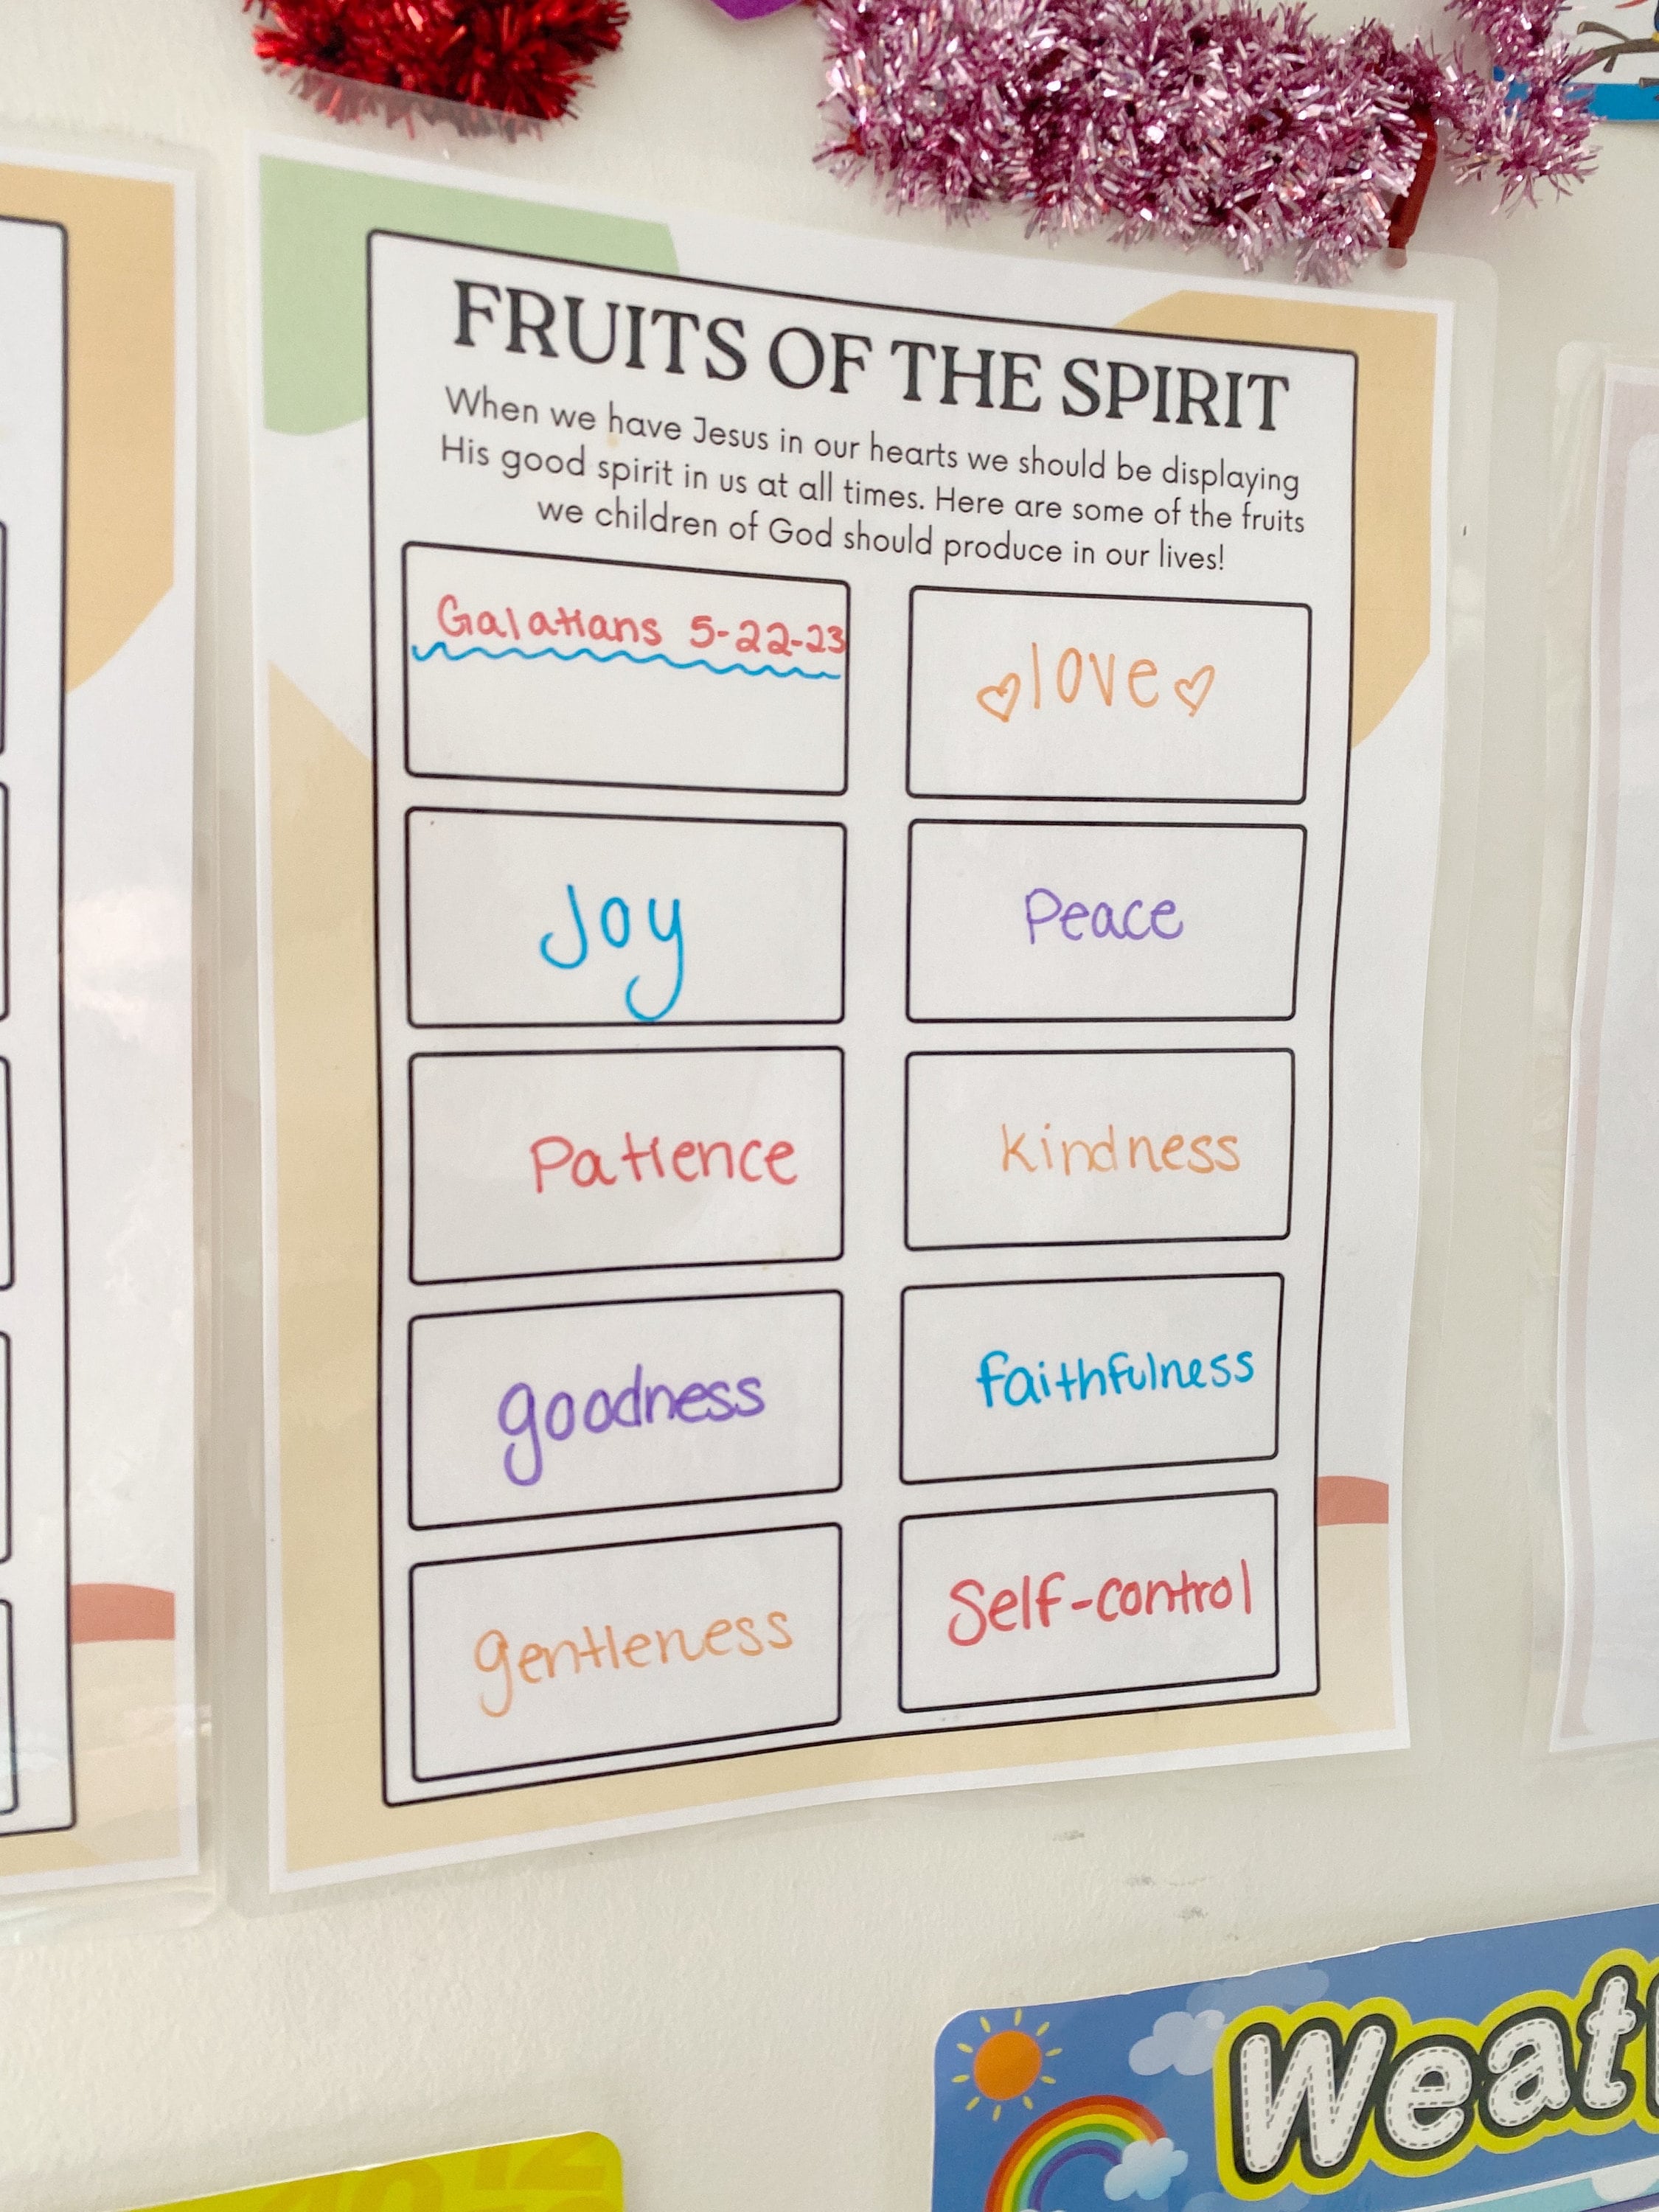 FRUITS OF THE SPIRIT
When we have Jesus in our hearts we should be displaying
His good spirit in us at all times. Here are some of the fruits
we children of God should produce in our lives!
Galatians 5-22-23
love
Joy
Peace
Patience
kindness
goodness
faithfulness
gentleness
Self-control
Weat
12